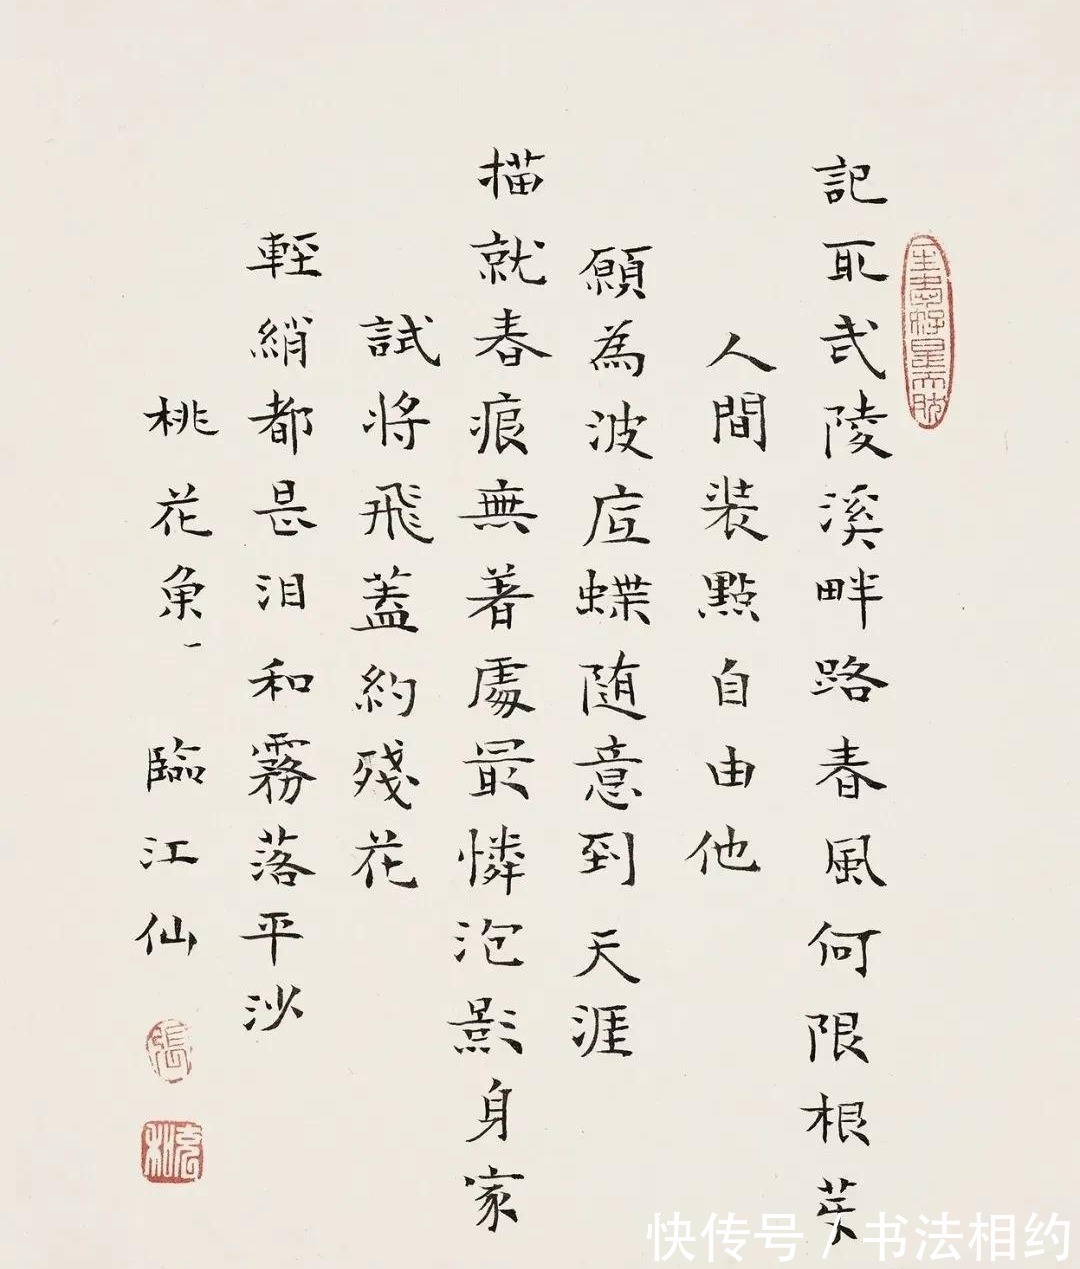 記取武陵溪畔路春風何限根芽
人間裝點自由他
願為波底蝶随意到天涯
描就春痕無著處最憐泡影身家
試將飛蓋約殘花
輕綃都是泪和霧落平沙
桃花魚一 臨江仙
張
快传号 / 书法相约